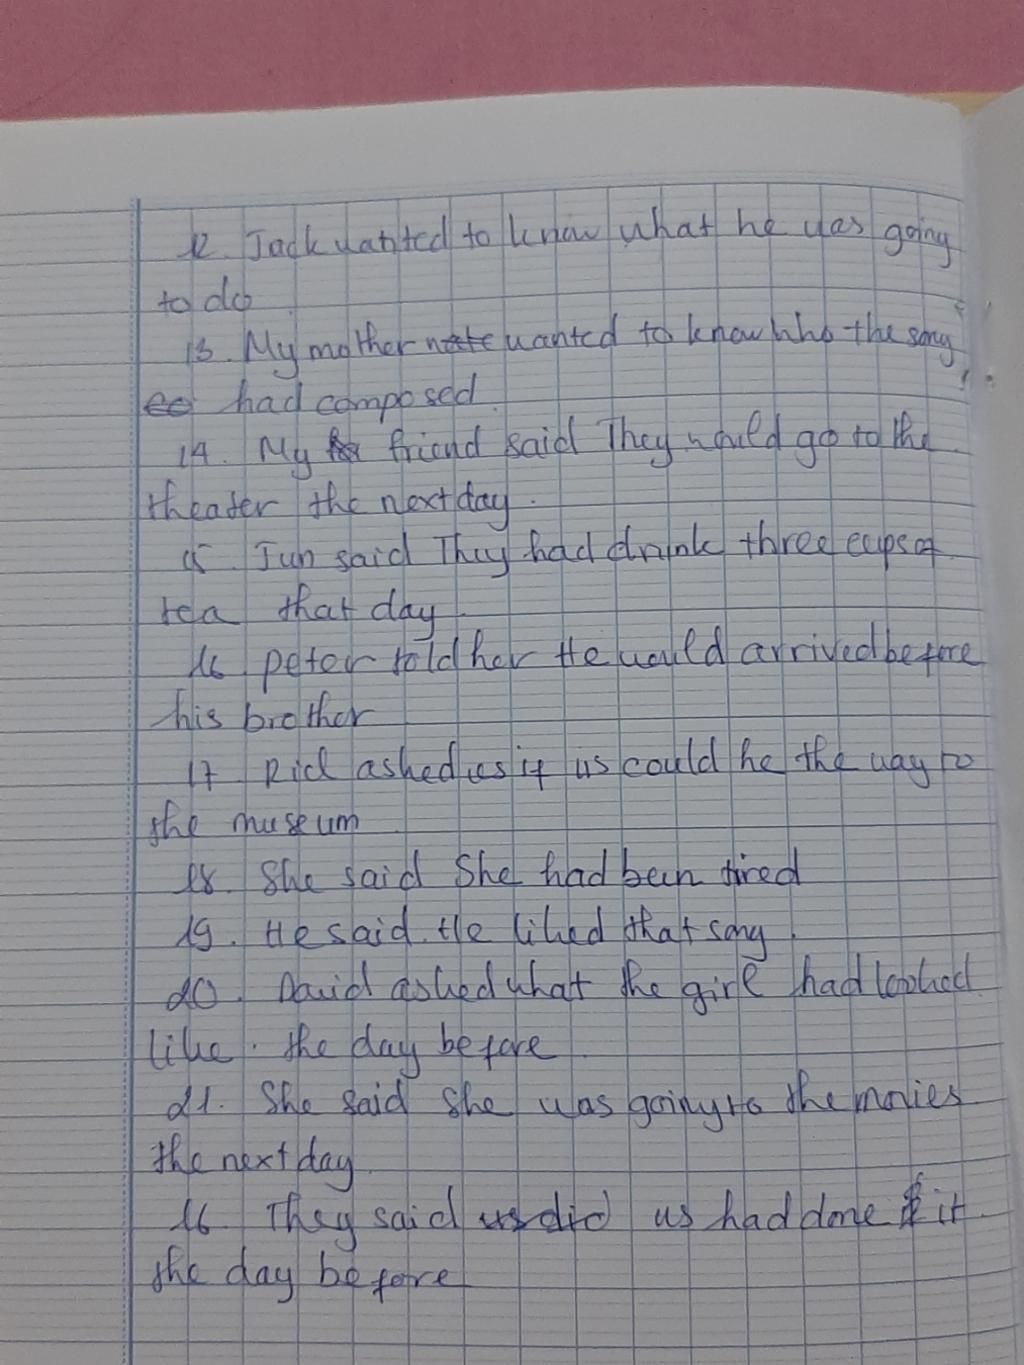 12. Jack wanted to know what he was going
to do
13. My mother wanted to know who the song
had composed.
14. My friend said They would go to the
theater the next day.
15 Jun said They had drink three cups of
tea that day
16 peter told her He would arrived before
his brother
17 Rick asked us if us could he the way to
the museum
18. She said She had been tired
19. He said He liked that song.
20. David asked what the girl had looked
like. the day before
21. She said she was going to the movies
the next day
16 They said us had done it
the day before